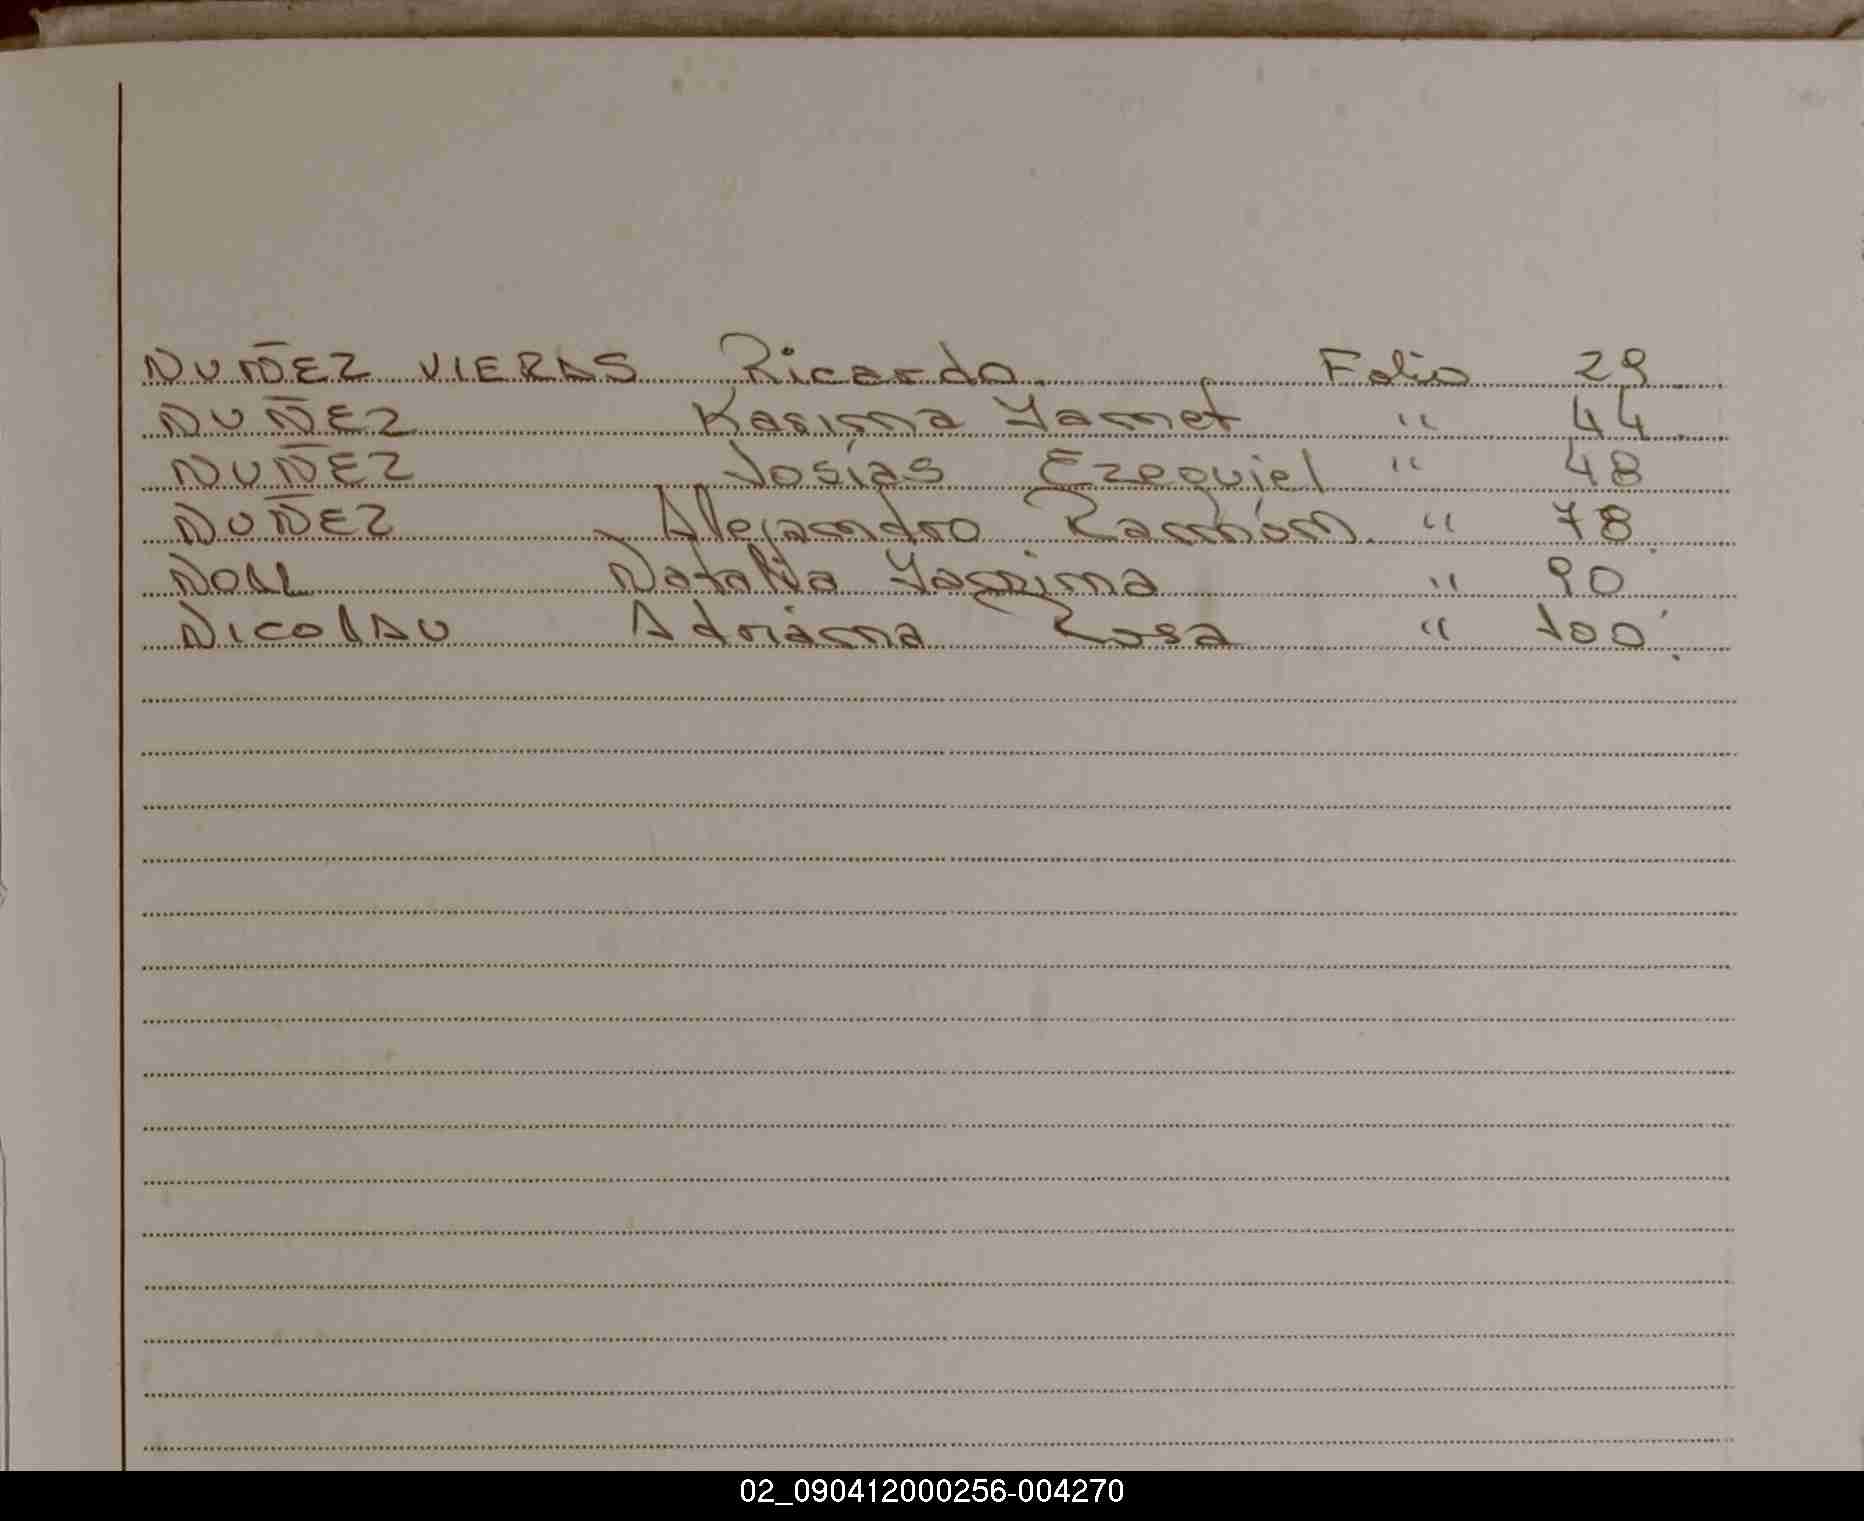 NUÑEZ VIERAS Ricardo. Folio 29
NUÑEZ Karima Yamet " 44
NUÑEZ Josías Ezequiel " 48
NUÑEZ Alejandro Ramón. " 78
NOLL Natalia Yanina " 90
NICOLAU Adriana Rosa " 100
02_090412000256-004270